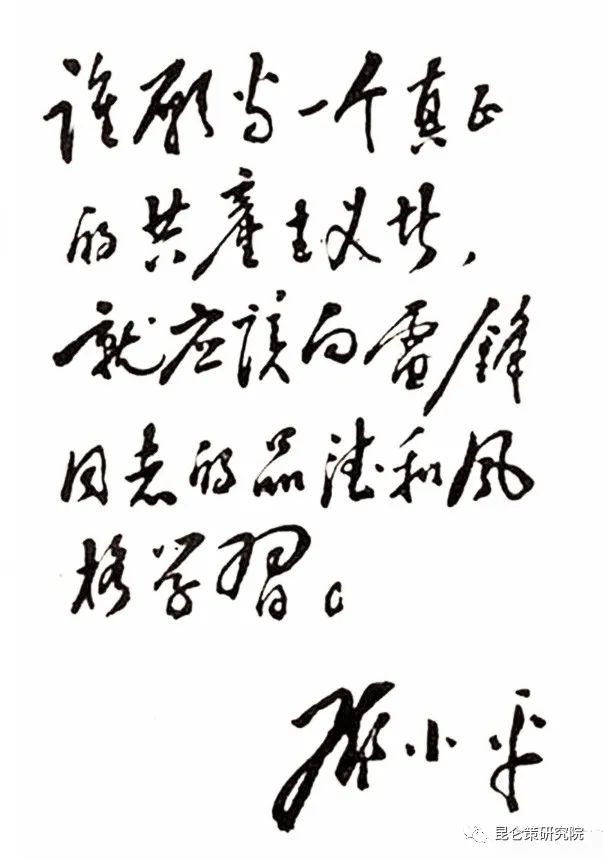 谁愿当一个真正
的共產主义者，
就应该向雷锋
同志的品德和风
格学習。
邓小平
昆仑策研究院